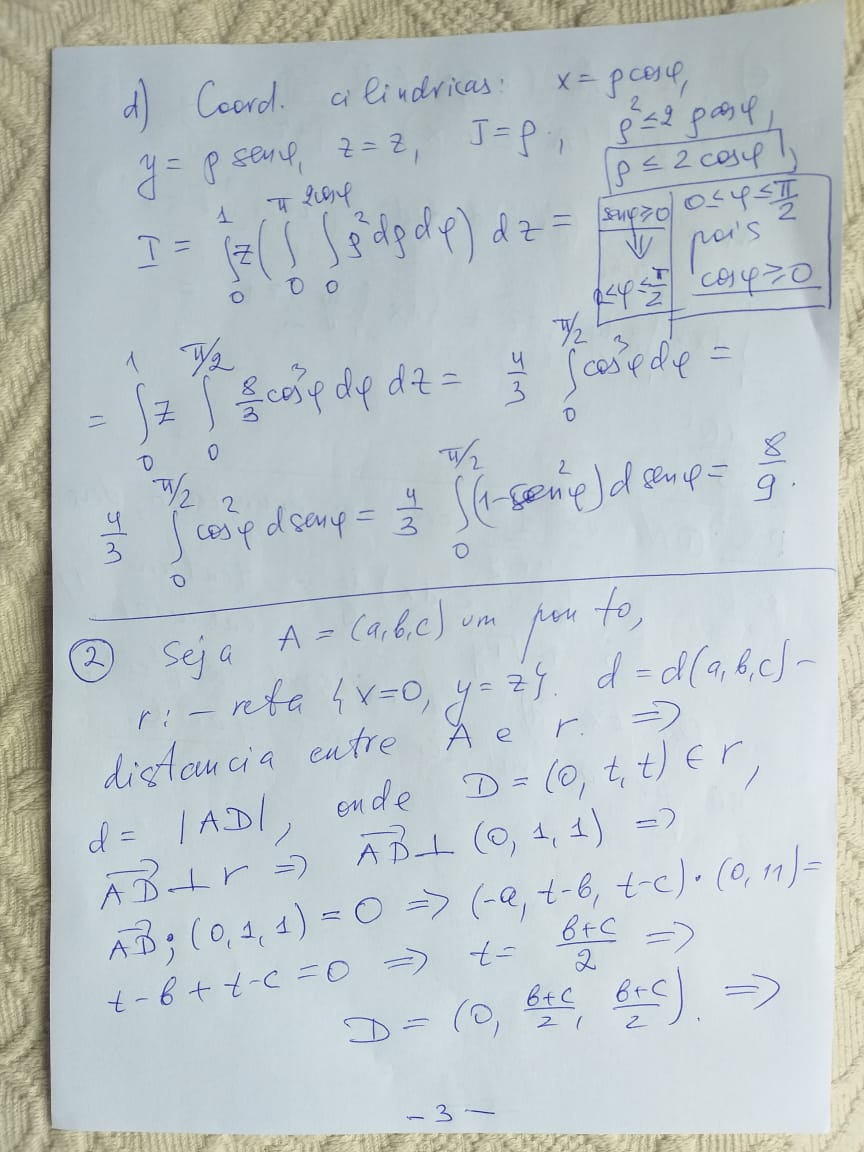 d) Coord. cilindricas: x = ρcosφ,
y = ρ senφ, z = z, J = ρ, ρ² ≤ 2 ρcosφ,
ρ ≤ 2 cosφ,
I = ∫₀¹ z(∫₀^π ∫₀^{2cosφ} ρ² dρ dφ) dz =
senφ ≥ 0 ⇓ 0 ≤ φ ≤ π/2
0 ≤ φ ≤ π/2 pois cosφ ≥ 0
= ∫₀¹ z ∫₀^{π/2} 8/3 cos³φ dφ dz = 4/3 ∫₀^{π/2} cos³φ dφ =
4/3 ∫₀^{π/2} cos²φ d senφ = 4/3 ∫₀^{π/2} (1-sen²φ) d senφ = 8/9.
② Seja A = (a,b,c) um ponto,
r: - reta {x=0, y=z}. d = d(a,b,c) -
distancia entre A e r. ⇒
d = |AD|, onde D = (0, t, t) ∈ r,
→AD ⊥ r ⇒ →AD ⊥ (0, 1, 1) ⇒
→AD · (0,1,1) = 0 ⇒ (-a, t-b, t-c) · (0,11) =
t-b + t-c = 0 ⇒ t = (b+c)/2 ⇒
D = (0, (b+c)/2, (b+c)/2). ⇒
- 3 -